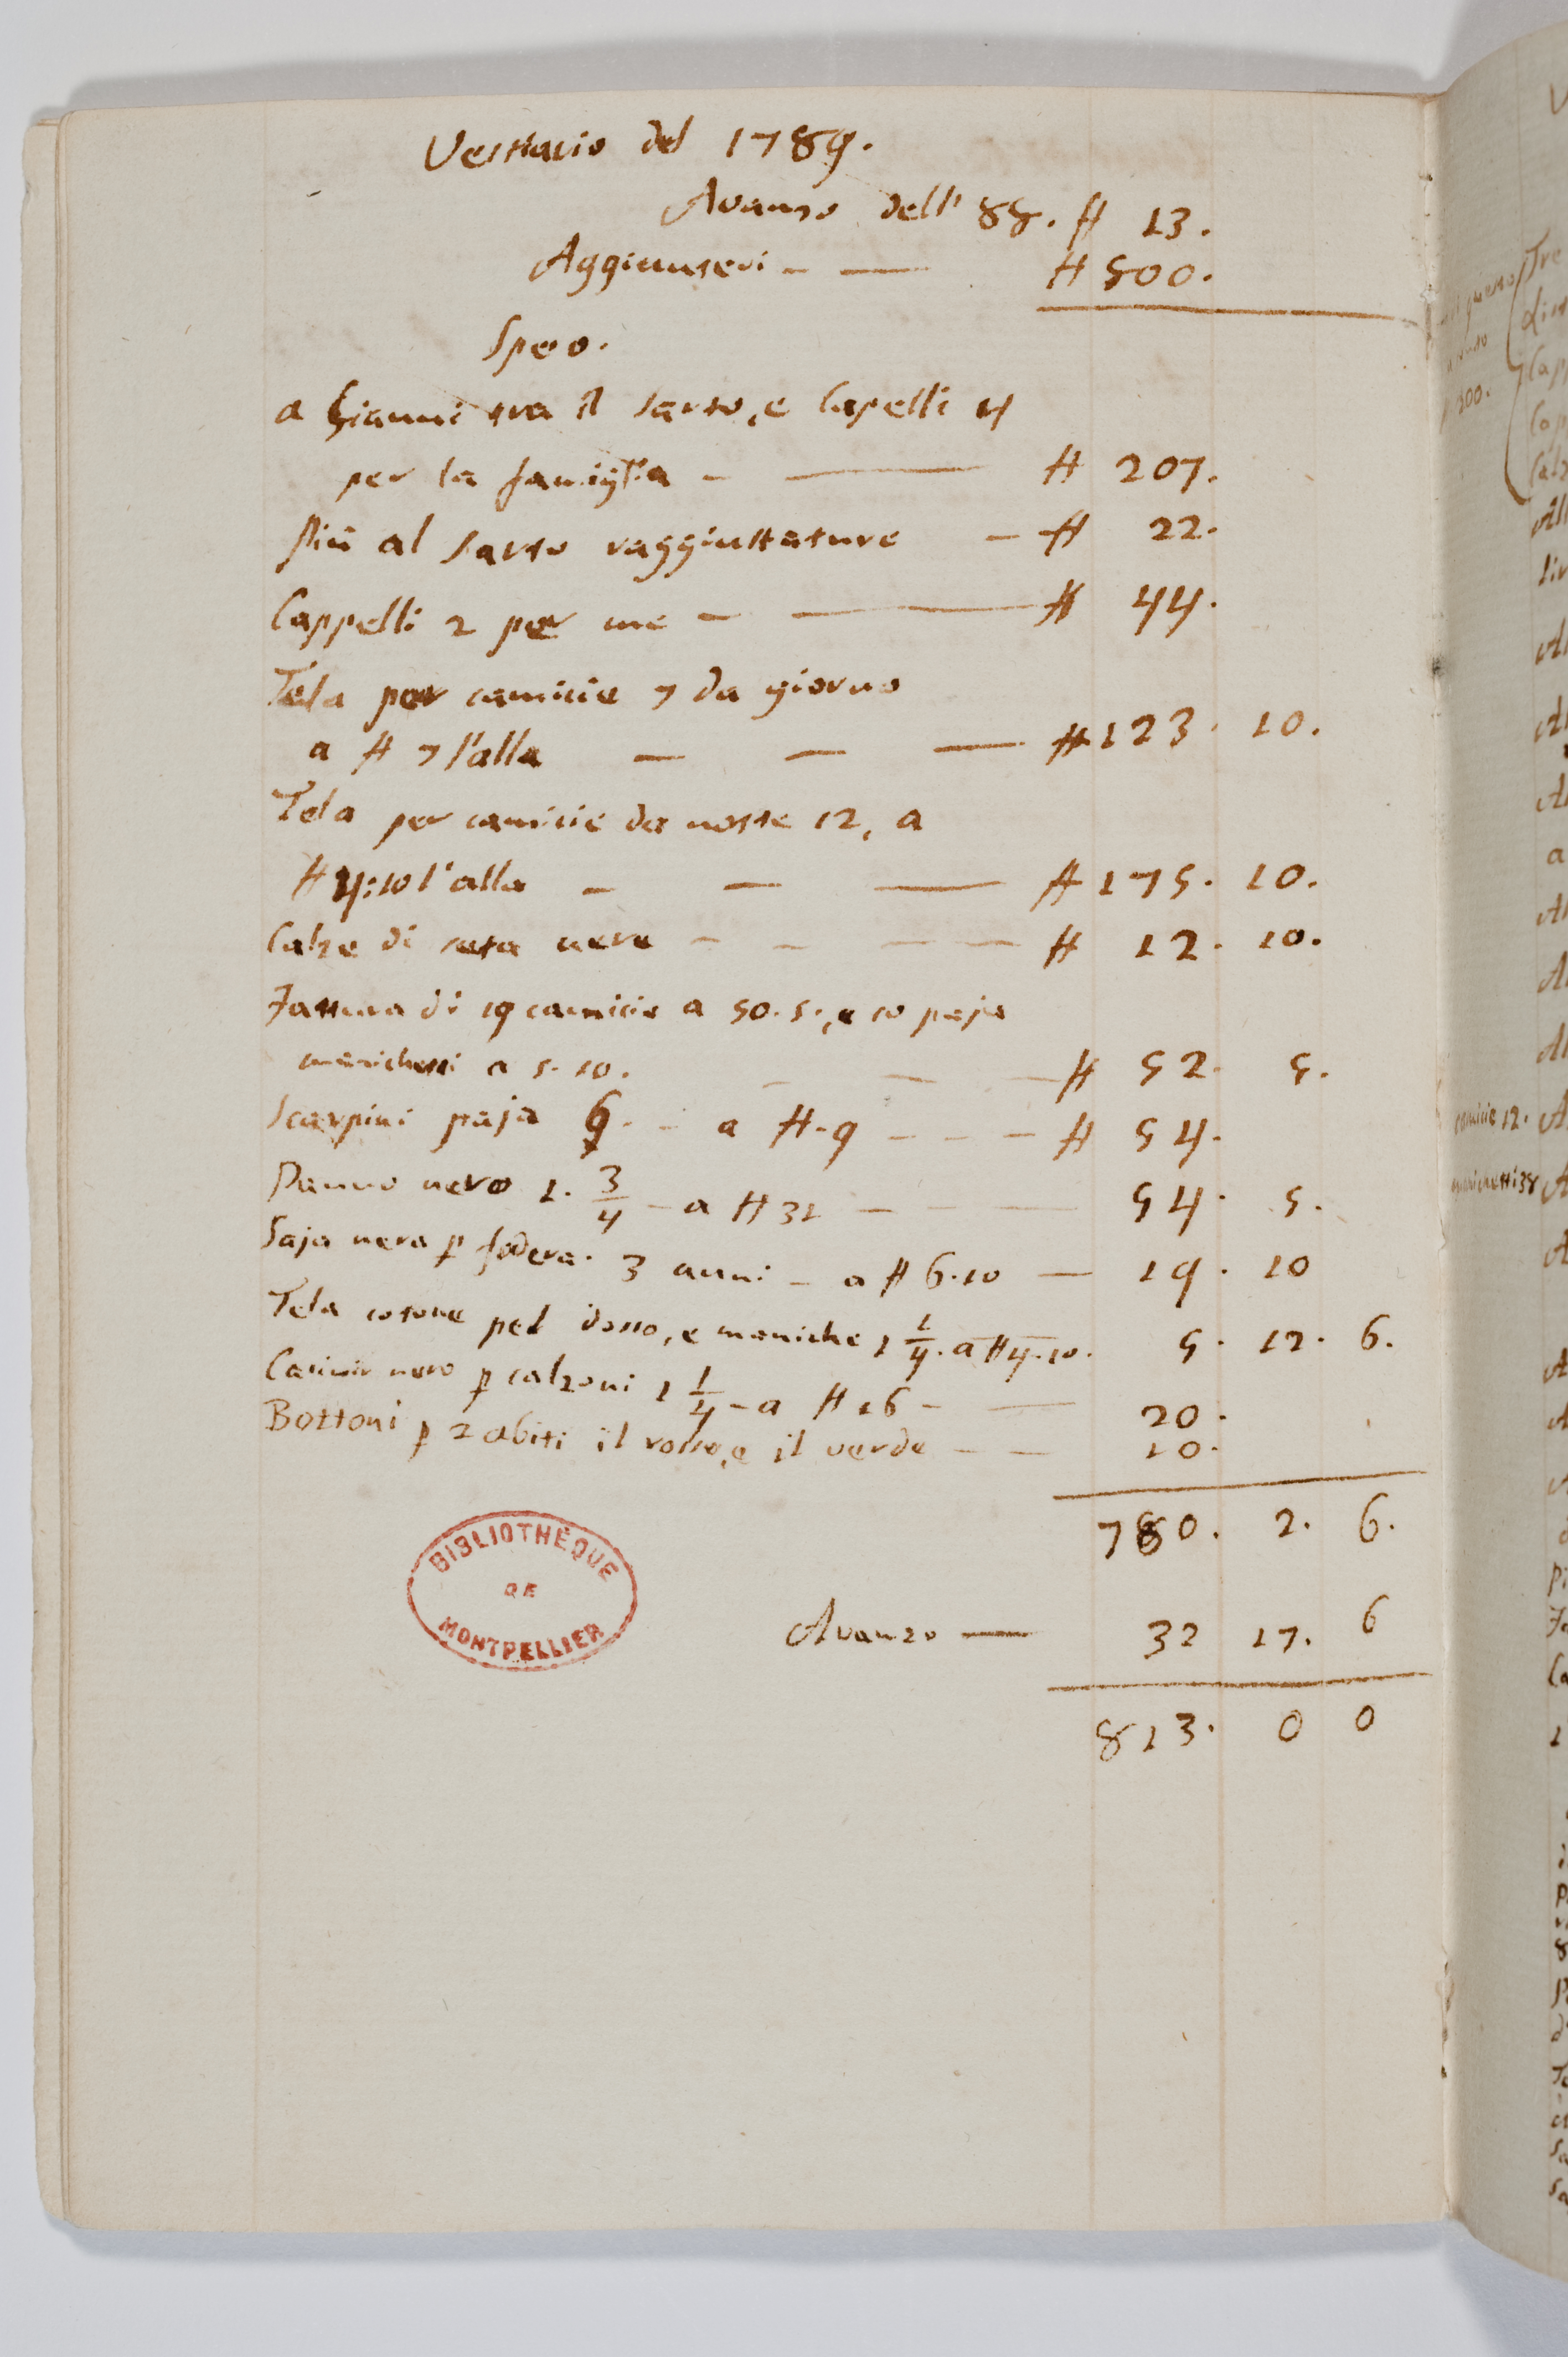 Vestiario del 1789.
Avanzo dell' 88. ₶ 13.
Aggiuntevi - — ₶ 800.
Speo.
a Gianni tra il sarto, e Capelli 4
per la famiglia - — ₶ 207.
Più al sarto raggiustature - ₶ 22.
Cappelli 2 per me - — ₶ 44.
Tela per camicie 7 da giorno
a ₶ 7 l'alla — — — ₶ 123. 10.
Tela per camicie da notte 12, a
₶ 4:10 l'alla - — — ₶ 175. 10.
Calze di seta nere - - - - ₶ 12. 10.
Fattura di 19 camicie a 50. s., e 10 paja
manichetti a s. 10. - - - ₶ 52. 5.
Scarpini paja 6. - - a ₶. 9 - - - ₶ 54.
Panno nero 1. 3/4 - a ₶ 31 - - — 54. 5.
Saja nera p fodera. 3 aune - a ₶ 6.10 — 19. 10
Tela cotone pel dosso, e maniche 1 1/4. a ₶ 4.10. 5. 12. 6.
Casimir nero p calzoni 1 1/4 - a ₶ 16 - — 20.
Bottoni p 2 abiti il rosso, e il verde - — 10.
780. 2. 6.
BIBLIOTHÈQUE
DE
MONTPELLIER
Avanzo — 32 17. 6
813. 0 0
camicie 12.
manichetti 38